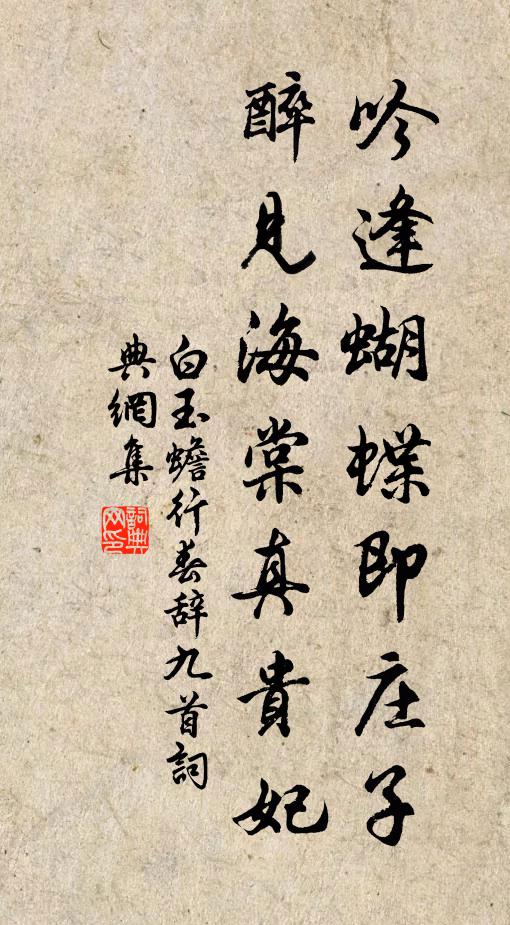 吟逢蝴蝶即庄子
醉見海棠真貴妃
白玉蟾行春辞九首詞
典網集
詞典网印